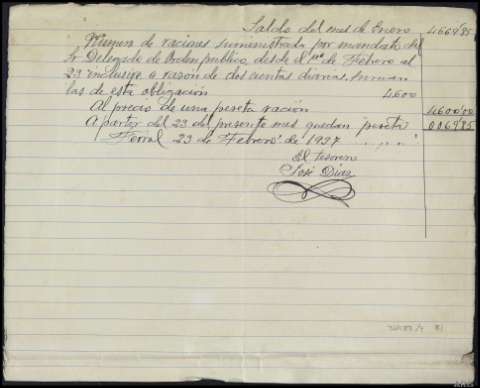 Saldo del mes de Enero 4669'85
Número de raciones suministradas por mandato del
Sr Delegado de Orden público, desde el 1º de Febrero al
23 inclusive a razón de doscientas diarias, suman
las de esta obligación 4600
Al precio de una peseta ración 4600'00
A partir del 23 del presente mes quedan pesetas 0069'85
Ferrol 23 de Febrero de 1937
El tesorero
José Díaz